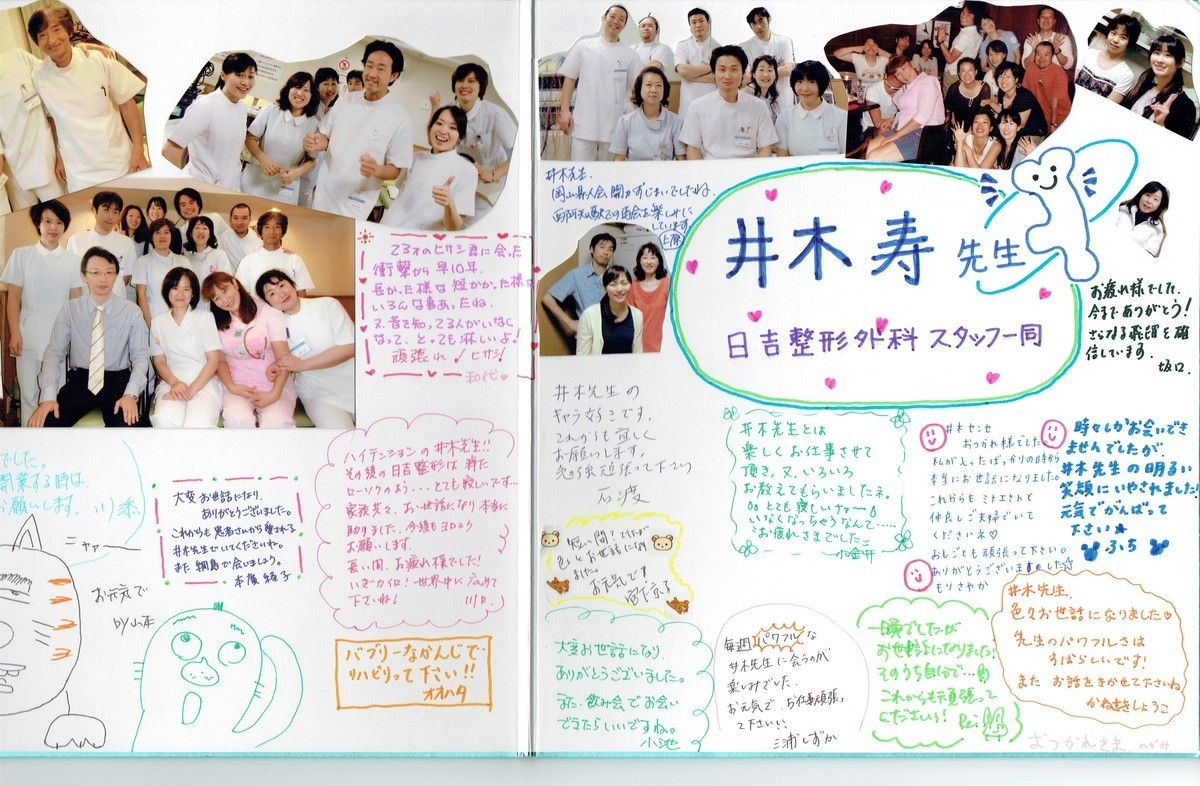 23才のヒサシ君に会った
衝撃から早10年.
長かった様な短かかった様な
いろんな事あったね.
又昔を知ってる人がいなく
なって、とっても淋しいよ!
頑張れ!ヒサシ!
和代
でした。
開業する時は、
お願いします。川添
大変お世話になり、
ありがとうございました。
これからも患者さんから愛される
井木先生でいてくださいね。
また 綱島で会いましょう。
本廣 綾子
ハイテンションの井木先生!!
その後の日吉整形は 消えた
ローソクのよう・・・とても寂しいです…
家族共々、お世話になり 本当に
助かりました、今後もヨロシク
お願いします。
長い間、お疲れ様でした!
いざ・カイロ!世界中に広めて
下さいね!
ニャァー
お元気で
by山本
バブリーなかんじで
リハビリって下さい!!
オオハタ
井木先生、
岡山県人会開かずじまいでしたね.
しています
井木 寿 先生
日吉整形外科 スタッフ一同
お疲れ様でした.
今までありがとう!
さらなる飛躍を確
信しています.
坂口.
井木先生の
キャラ好きです.
これからも宜しく
お願いします。
勉強頑張って下さい
石渡
井木先生とは
楽しくお仕事させて
頂き、又、いろいろ
お教えてもらいましたネ。
とても寂しいナァー
いなくなっちゃうなんて…..
お疲れさまでした
小金井
井木センセ
おつかれ様でした
私が入ったばっかりの時から
本当にお世話になりました.
これからも ミナエさんと
仲良しご夫婦でいて
くださいネ♡
おしごとも頑張って下さい。
ありがとうございました
もりさやか
時々しかお会いでき
ませんでしたが、
井木先生の明るい
笑顔にいやされました!
元気でがんばって
下さい★
ふち
短い間でしたが
色々お世話になり
ました。
お元気で
大変お世話になり、
ありがとうございました。
また、飲み会でお会い
できたらいいですね。
小池
毎週パワフルな
井木先生に会うのが
楽しみでした.
お元気で、お仕事頑張っ
て下さい!
三浦しずか
一瞬でしたが
お世話になりました!
そのうち自分で…
これからも頑張って
ください!
Rei
井木先生、
色々お世話になりました♡
先生のパワフルさは
すばらしいです!
また お話をきかせて下さいね
かねさきしょうこ
おつかれさま. のがみ